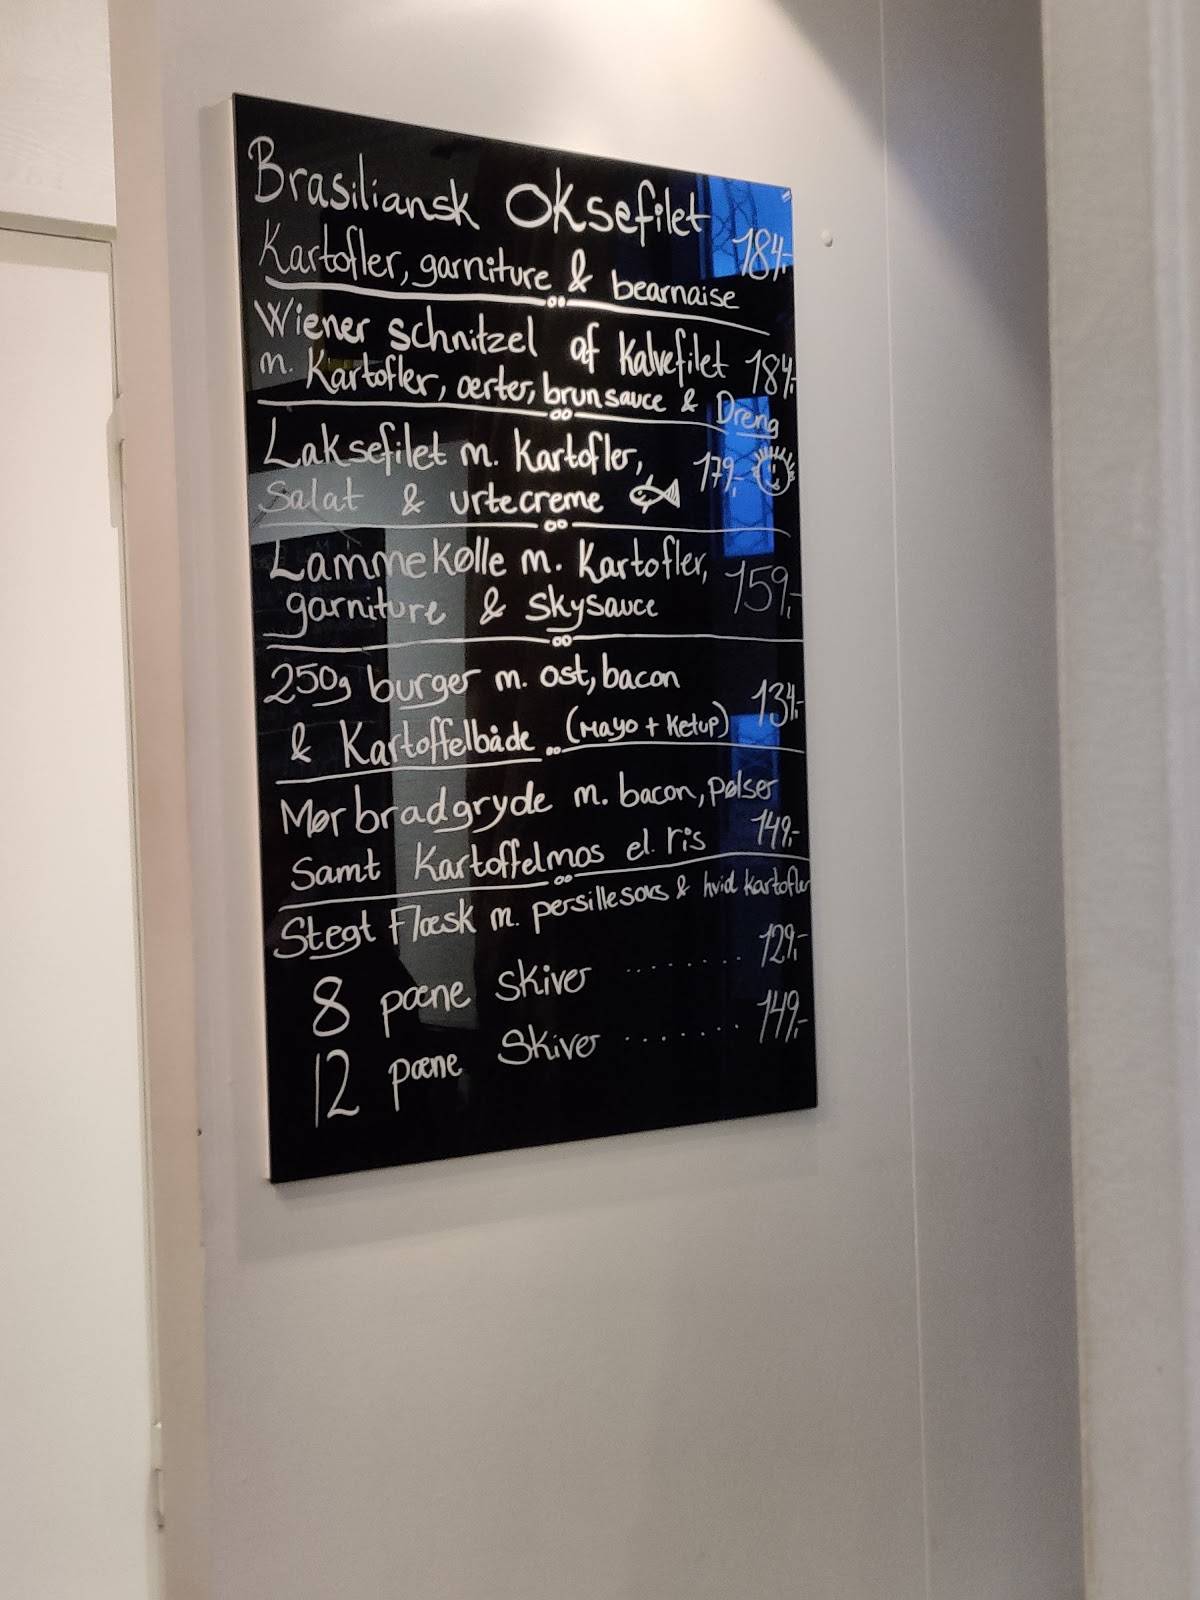 Brasiliansk Oksefilet
Kartofler, garniture & bearnaise 184,-
Wiener schnitzel af Kalvefilet 184,-
m. Kartofler, ærter, brun sauce & Dreng
Laksefilet m. Kartofler, 179,-
Salat & urtecreme
Lammekølle m. Kartofler, 159,-
garniture & Skysauce
250g burger m. ost, bacon 134,-
& Kartoffelbåde (Mayo + Ketup)
Mørbradgryde m. bacon, pølser
Samt Kartoffelmos el. ris 149,-
Stegt Flæsk m. persillesovs & hvid kartofler
8 pæne skiver ........ 129,-
12 pæne Skiver ........ 149,-